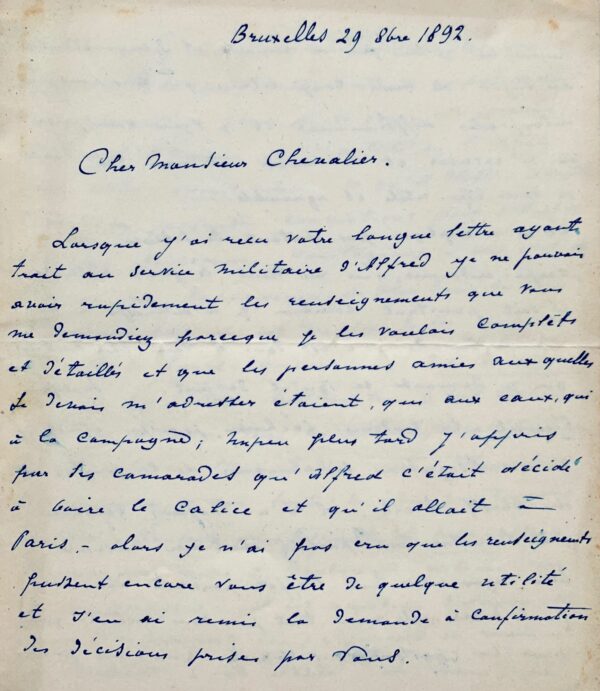 Bruxelles 29 8bre 1892.
Cher Monsieur Chevalier.
Lorsque j'ai reçu votre longue lettre ayant
trait au service militaire d'Alfred je ne pouvais
avoir rapidement les renseignements que vous
me demandiez parceque je les voulais complèts
et détaillés et que les personnes amies aux quelles
je devais m'adresser étaient, qui aux eaux, qui
à la campagne; unpeu plus tard j'appris
par ses camarades qu'Alfred c'était décidé
à boire le calice et qu'il allait à
Paris - alors je n'ai pas cru que les renseignements
pussent encore vous être de quelque utilité
et j'en ai remis la demande à confirmation
des décisions prises par vous.